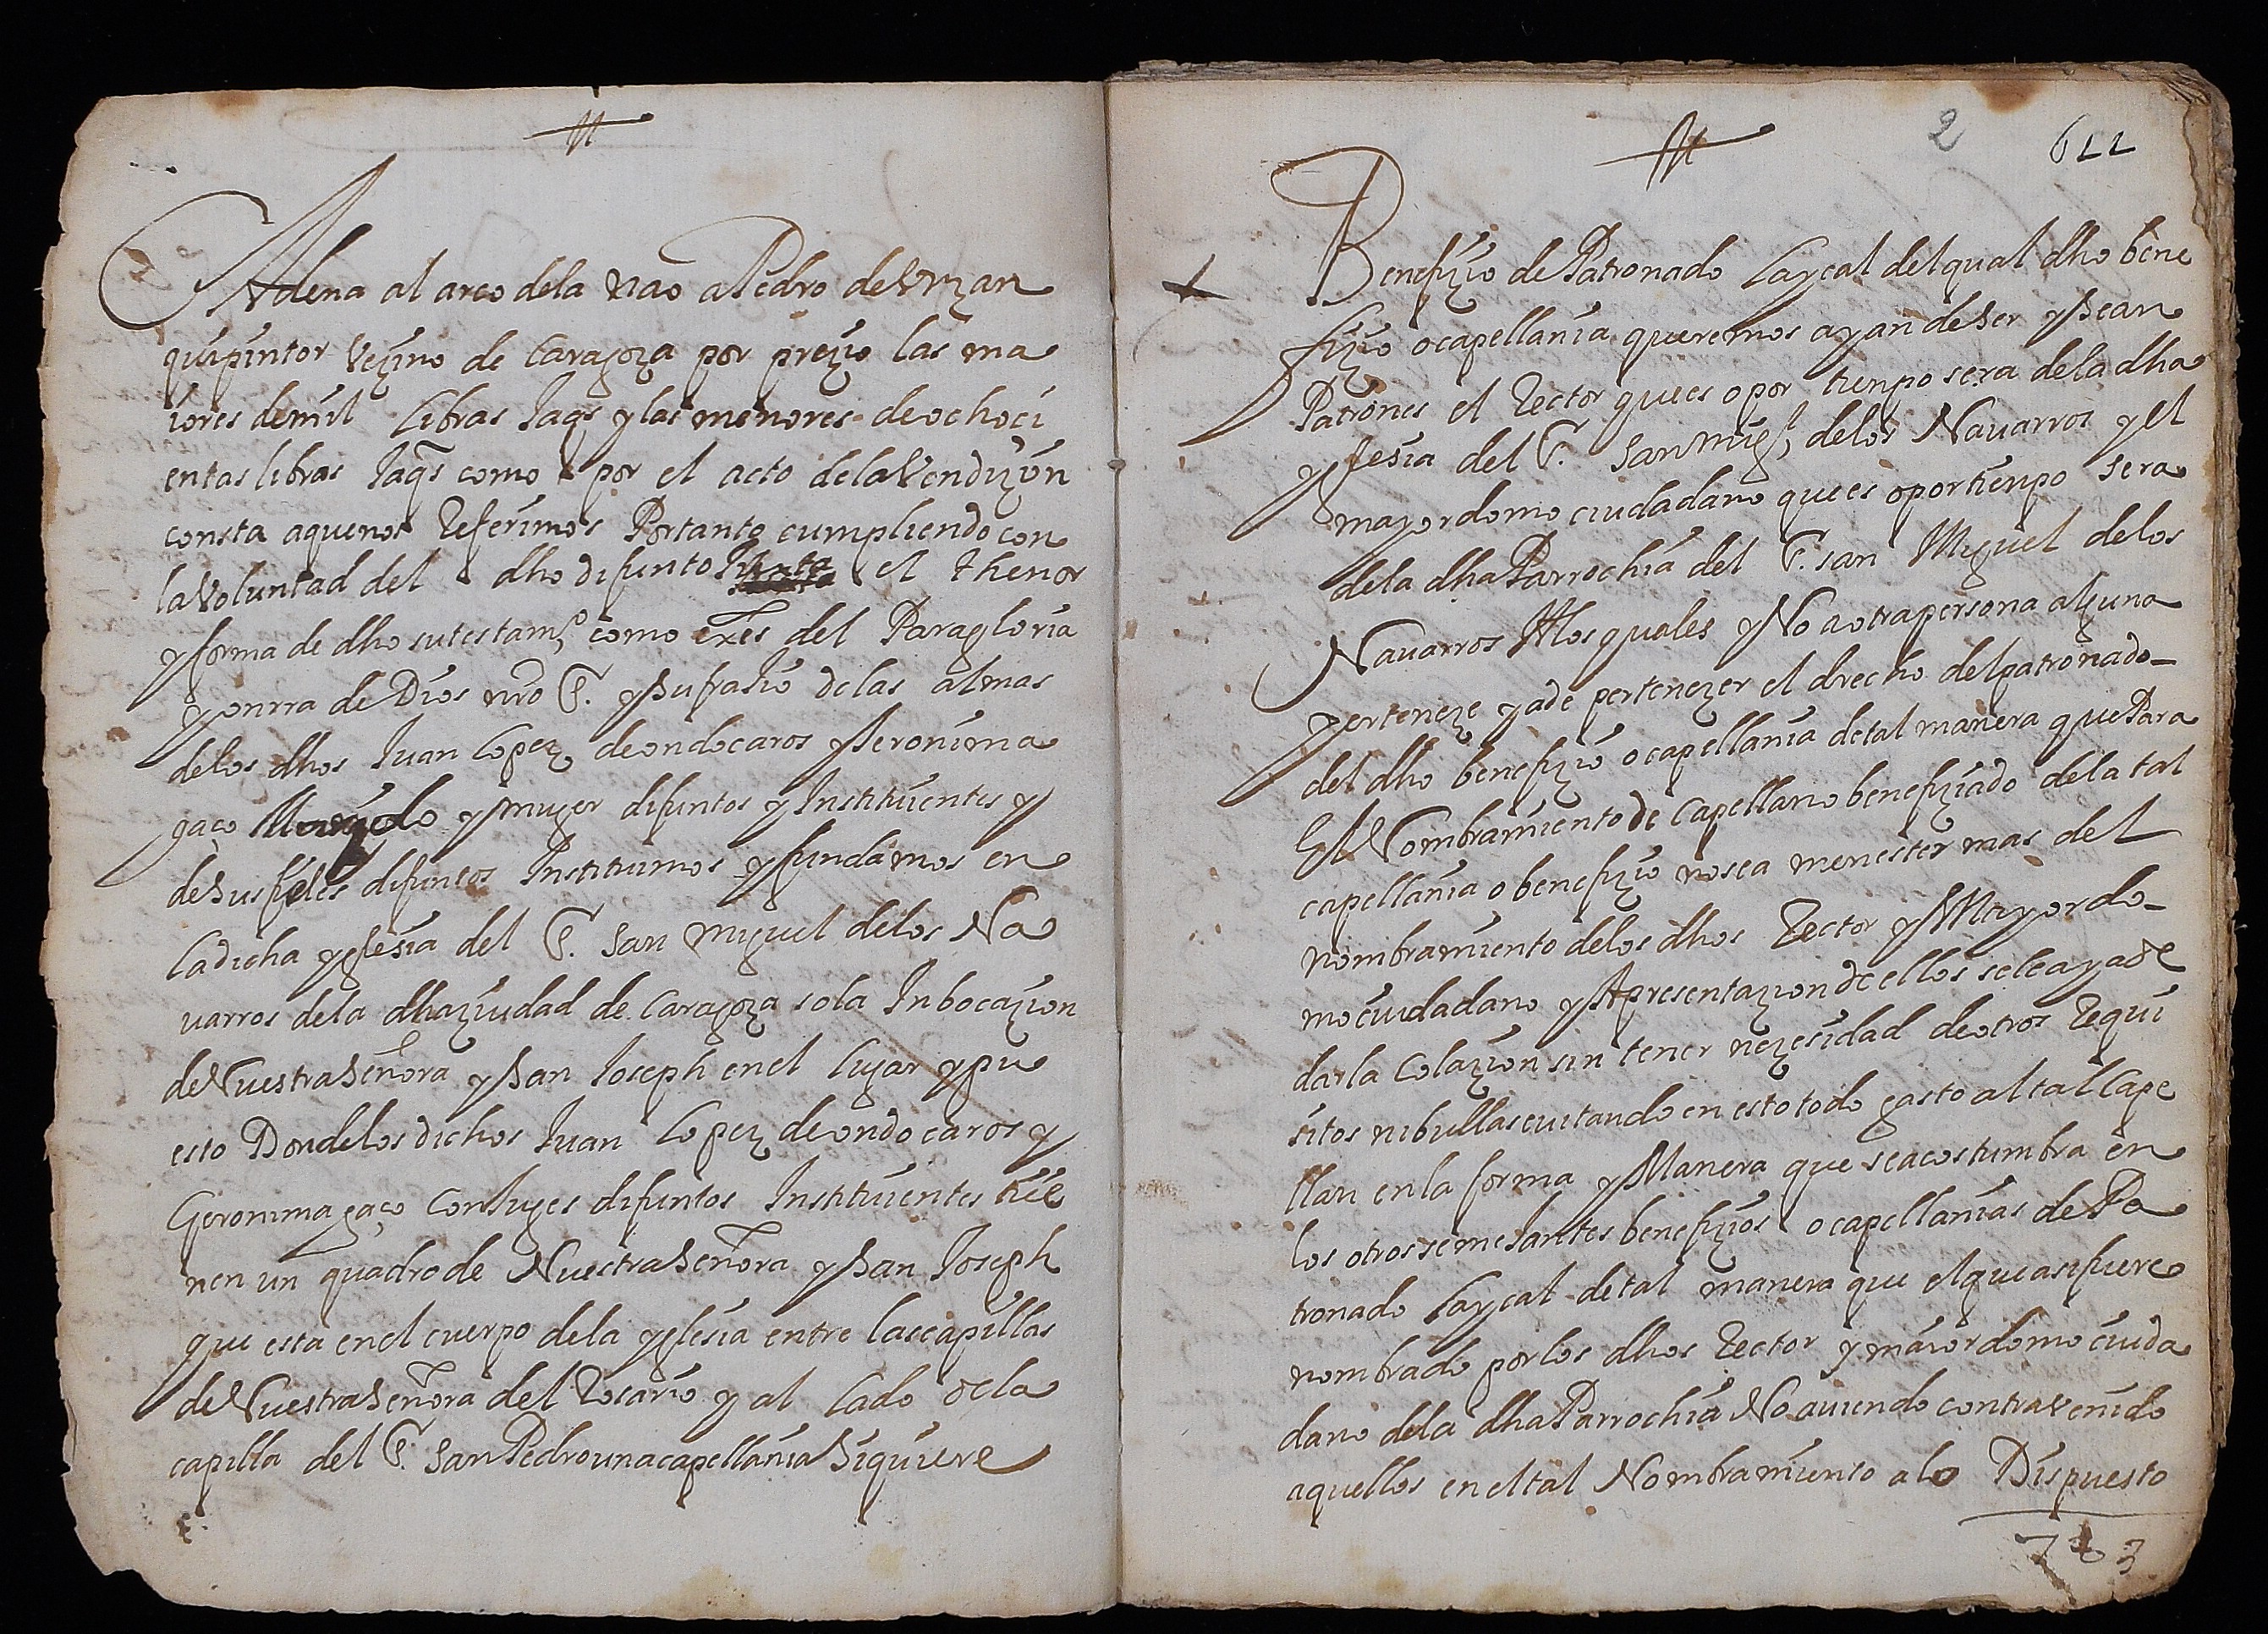 Adena al arco dela nao a Pedro de Urzan
qui pintor vezino de Caragoza por prezio las ma
iores de mil libras Jaqs y las menores de ochoci
entas libras Jaqs como por el acto dela Vendizion
consta aquenos Referimos Portanto cumpliendo con
la Voluntad del dho difunto el thenor
y forma de dho su testamto como exes del Para gloria
y onrra de Dios nro S. y sufrasio delas almas
delos dhos Juan Lopez de ondocaros y Jeronima
gaço y muger difuntos y Instituientes y
de sus fieles difuntos Instituimos y fundamos en
la dicha yglesia del S. San Miguel delos Na
uarros dela dha ziudad de Caragoza sola Inbocazion
de Nuestra Señora y San Joseph en el lugar y pu
esto Donde los dichos Juan Lopez de ondocaros y
Geronima gaço Conjuges difuntos Instituientes tie
nen un quadro de Nuestra Señora y San Joseph
que esta en el cuerpo dela yglesia entre las capillas
de Nuestra Señora del Rosario y al lado dela
capilla del S. San Pedro una capellania Siquiere
2 622
Benefizio de Patronado Laycal del qual dho bene
fizio o capellania queremos ayan de ser y sean
Patrones el Rector que es o por tienpo sera dela dha
yglesia del S. San Migl delos Nauarros y el
mayordomo ciudadano que es o por tienpo sera
dela dha Parrochia del S. san Miguel delos
Nauarros Alos quales y No a otra persona alguna
perteneze y a de pertenezer el drecho del patronado
del dho benefizio o capellania de tal manera que Para
El Nombramiento de Capellano benefiziado dela tal
capellania o benefizio no sea menester mas del
nombramiento delos dhos Rector y Mayordo
mo ciudadano y Apresentazion de ellos se le aya de
dar la Colazion sin tener nezesidad de otros Requi
sitos ni bullas euitando en esto todo gasto al tal Cape
llan en la forma y Manera que se acostumbra en
los otros semejantes benefizios o capellanias de Pa
tronado Laycal de tal manera que el que asi fuere
nombrado por los dhos Rector y maiordomo ciuda
dano dela dha Parrochia No auiendo contravenido
aquellos en el tal Nombramiento alo Dispuesto